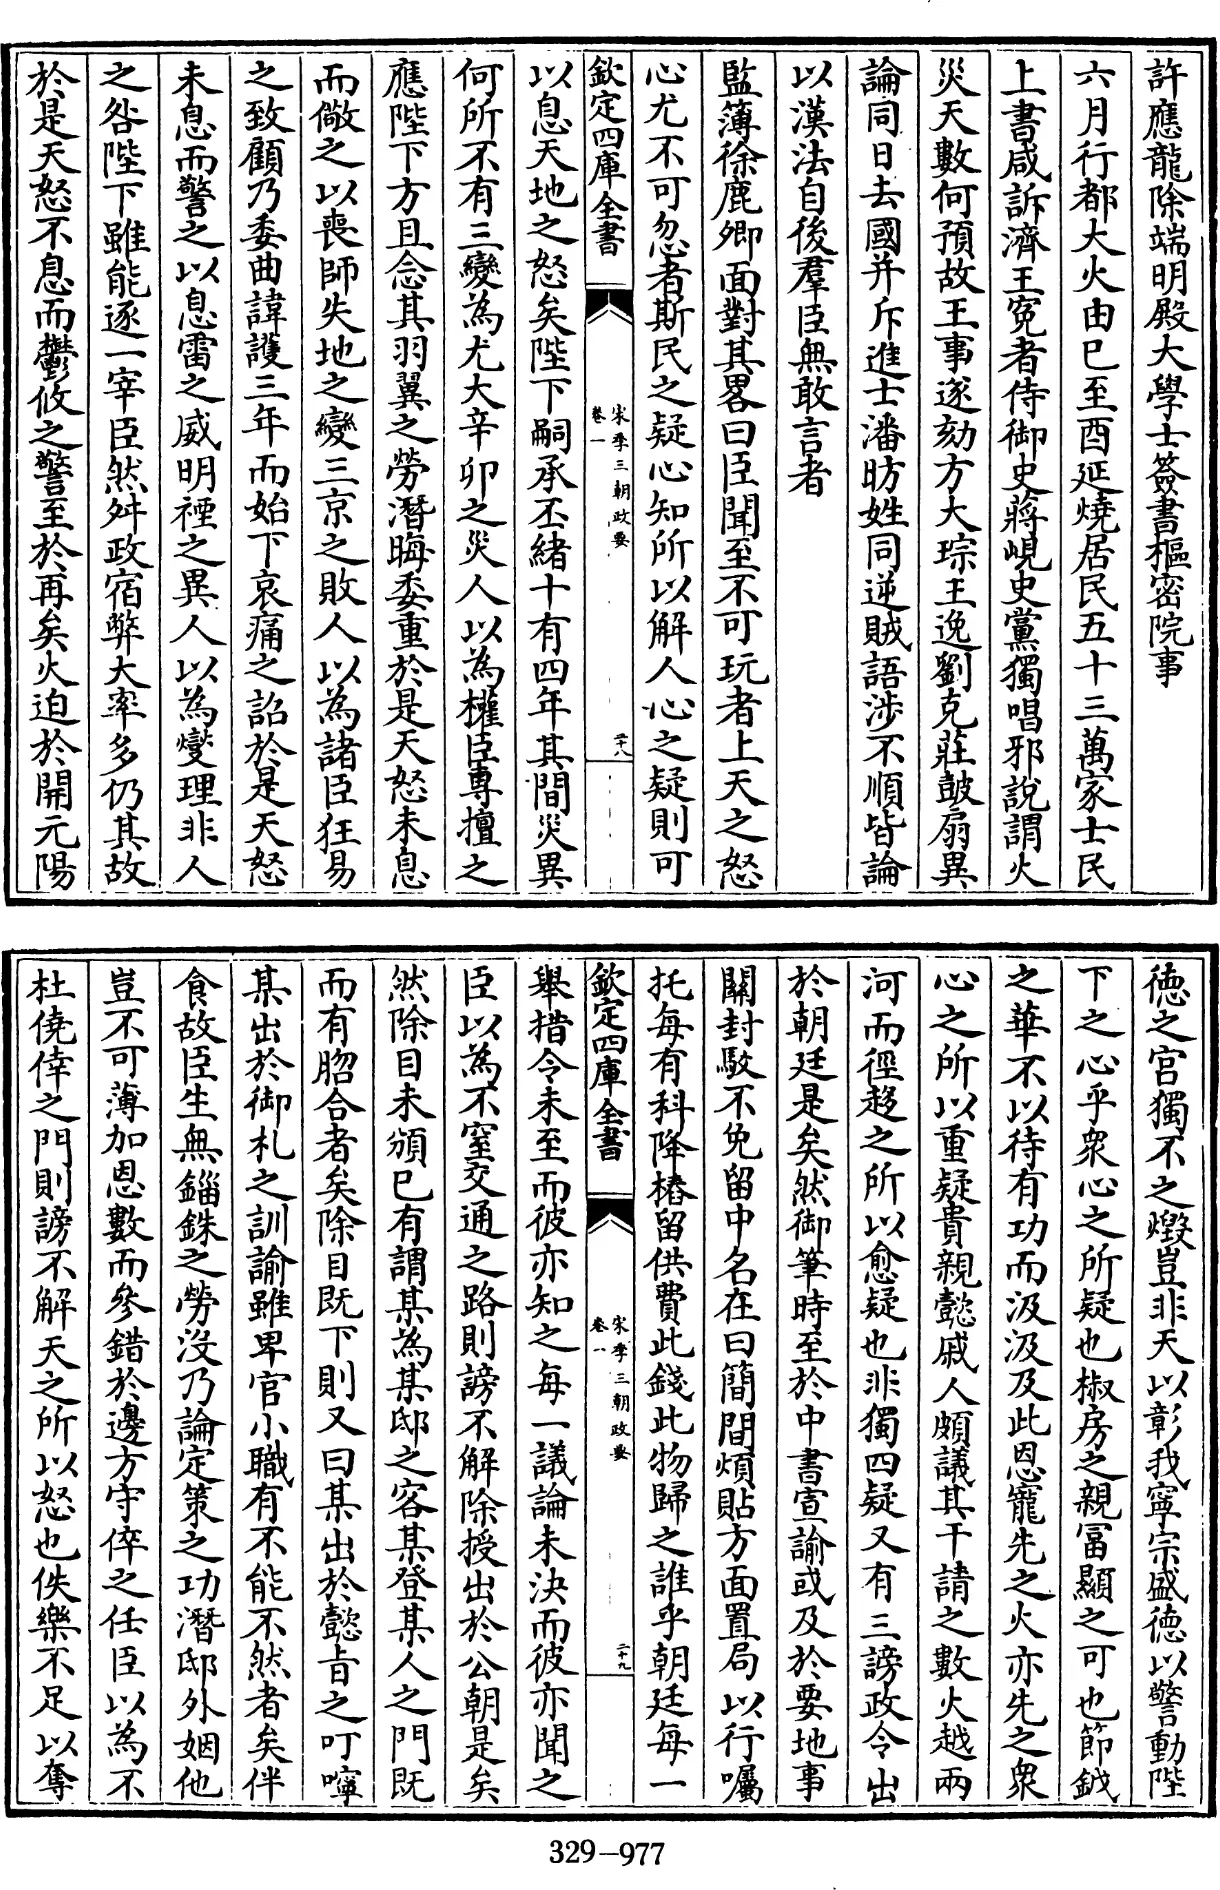 許應龍除端明殿大學士簽書樞密院事
六月行都大火由巳至酉延燒居民五十三萬家士民
上書咸訴濟王寃者侍御史蔣峴史黨獨唱邪說謂火
災天數何預故王事遂劾方大琮王逸劉克莊鼓扇異
論同日去國并斥進士潘昉姓同逆賊語涉不順皆論
以漢法自後羣臣無敢言者
監簿徐鹿卿面對其畧曰臣聞至不可玩者上天之怒
心尤不可忽者斯民之疑心知所以解人心之疑則可
欽定四庫全書
宋季三朝政要
卷一
二十八
以息天地之怒矣陛下嗣承丕緒十有四年其間災異
何所不有三變為尤大辛卯之災人以為權臣專擅之
應陛下方且念其羽翼之勞潛晦委重於是天怒未息
而儆之以喪師失地之變三京之敗人以為諸臣狂易
之致顧乃委曲諱護三年而始下哀痛之詔於是天怒
未息而警之以息雷之威明禋之異人以為燮理非人
之咎陛下雖能逐一宰臣然舛政宿弊大率多仍其故
於是天怒不息而鬱攸之警至於再矣火迫於開元陽
德之宮獨不之燬豈非天以彰我寧宗盛德以警動陛
下之心乎衆心之所疑也椒房之親富顯之可也節鉞
之華不以待有功而汲汲及此恩寵先之火亦先之衆
心之所以重疑貴親懿戚人頗議其干請之數火越兩
河而徑趍之所以愈疑也非獨四疑又有三謗政令出
於朝廷是矣然御筆時至於中書宣諭或及於要地事
關封駮不免留中名在曰簡間煩貼方面置局以行囑
托每有科降樁留供費此錢此物歸之誰乎朝廷每一
欽定四庫全書
宋季三朝政要
卷一
二十九
舉措令未至而彼亦知之每一議論未決而彼亦聞之
臣以為不窒交通之路則謗不解除授出於公朝是矣
然除目未頒巳有謂某為某邸之客某登某人之門既
而有脗合者矣除目既下則又曰某出於懿旨之叮嚀
某出於御札之訓諭雖卑官小職有不能不然者矣伴
食故臣生無錙銖之勞沒乃論定策之功潛邸外姻他
豈不可薄加恩數而參錯於邊方守倅之任臣以為不
杜僥倖之門則謗不解天之所以怒也佚樂不足以奪
329-977